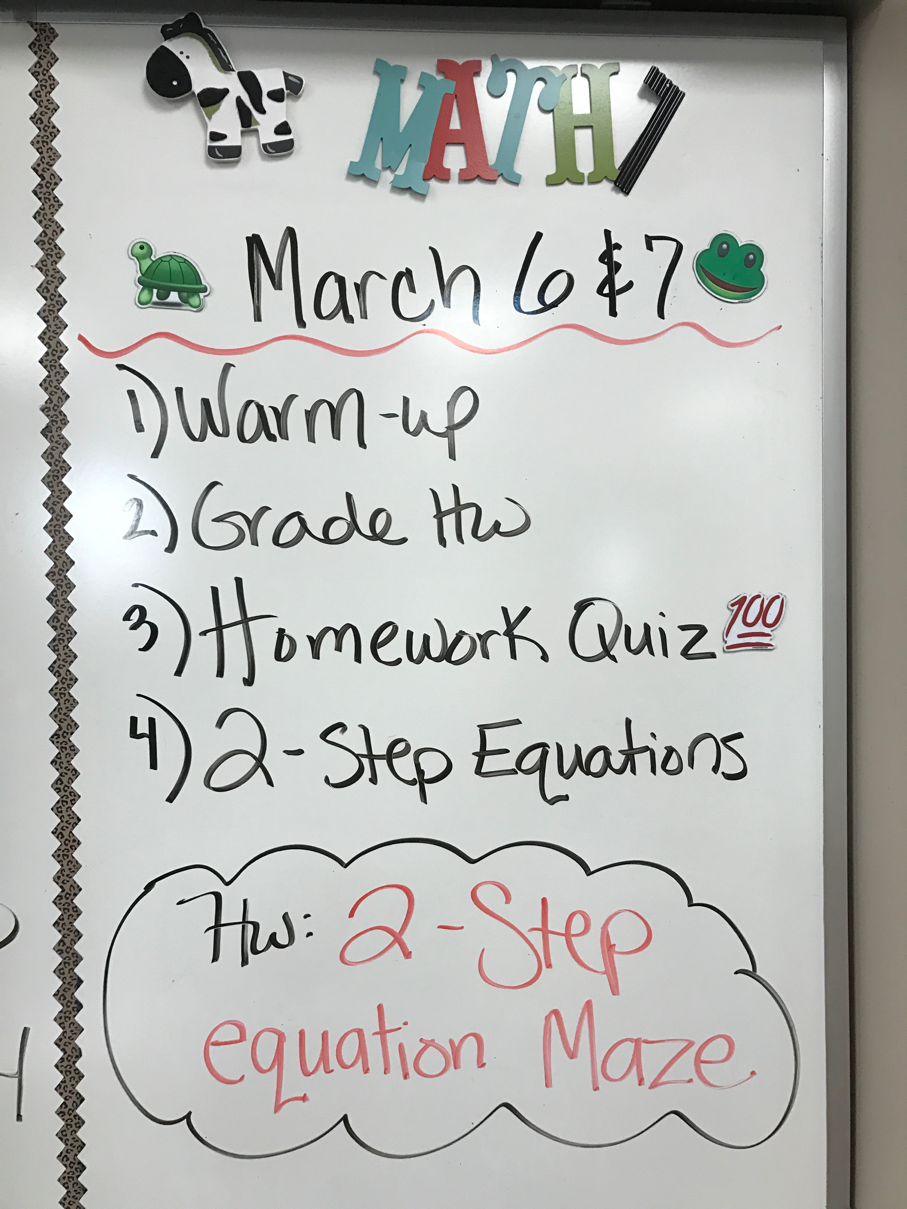 MATH 7
March 6 & 7
1) Warm-up
2) Grade Hw
3) Homework Quiz 100
4) 2-Step Equations
Hw: 2-Step
equation Maze